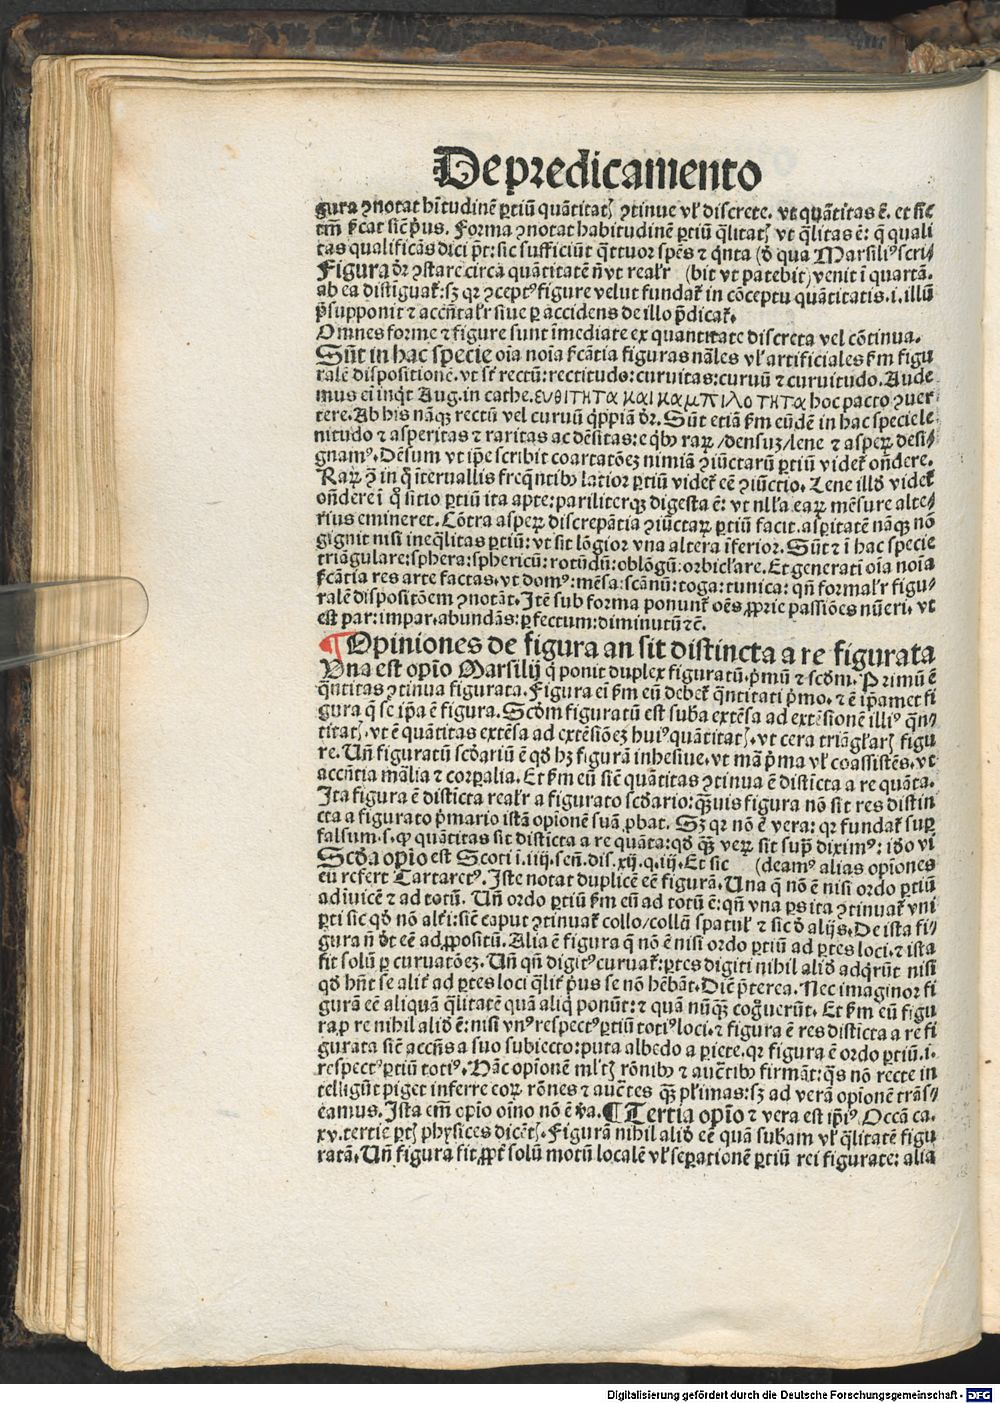 De predicamento
gura ꝯnotat hītudinē ꝑtiū quātitatꝭ ꝯtinue vľ discrete. vt quātitas ē. et
Forma ꝯnotat habitudinē ꝑtiū q̄litatꝭ vt q̄litas ē: q̄ quali
tas qualificās dici pōt: sic sufficiūt q̄ttuor spēs ⁊ qͥnta (ꝺ qua Marsiliꝰ scri⸗
Figura ꝺr ꝯstare circa quātitatē n̄ vt realr̄ (bit vt patebit) venit ī quartā.
ab ea distīguat̄: sꝫ qꝛ ꝯceptꝰ figure velut fundat̄ in cōceptu quātitatis .i. illū
p̄supponit ⁊ accn̄talr̄ siue ꝑ accidens de illo p̄dicat̄.
Omnes forme ⁊ figure sunt īmediate ex quantitate discreta vel cōtinua.
Sūt in hac specie oīa noīa figuras nāles vľ artificiales figu
ralē dispositionē. vt rectū: rectitudo: curuitas: curuū ⁊ curuitudo. Aude
mus eī inqͥt Aug. in cathe. ευθιτητα και καμπιλοτητα hoc pacto ꝯuer
tere. Ab his nāqꝫ rectū vel curuū ꝺr. Sūt etiā eūdē in hac specie le
nitudo ⁊ asperitas ⁊ raritas ac dēsitas: e qͥbꝰ /densuꝫ/lene ⁊ desi⸗
gnamꝰ. Dēsum vt ip̄e scribit coartatōeꝫ nimiā ꝯiūctarū ꝑtiū videt̄ on̄dere.
ē in qͦ īteruallis freq̄ntibꝰ latior ꝑtiū videt̄ eē ꝯiūctio. Lene illꝺ videt̄
on̄dere ī qͦ sitio ꝑtiū ita apte: pariliterqꝫ digesta ē: vt nľla mēsure alte⸗
rius emineret. Cōtra discrepātia ꝑtiū facit. asꝑitatē nāqꝫ nō
gignit nisi ineq̄litas ꝑtiū: vt sit lōgior vna altera īferior. Sūt ⁊ ī hac specie
triāgulare: sphera: sphericū: rotūdū: oblōgū: orbicľare. Et generati oīa noīa
res arte factas. vt domꝰ: mēsa: scānū: toga: tunica: qn̄ formalr̄ figu⸗
ralē dispositōem ꝯnotāt. Itē sub forma ponunt̄ oēs ꝓprie passiōes nūeri. vt
est par: impar. abundās: ꝑfectum: diminutū ⁊c̄.
¶ Opiniones de figura an sit distincta a re figurata
Vna est opīo Marsilij q̄ ponit duplex figuratū. pͥmū ⁊ scꝺm. Primū ē
q̄ntitas ꝯtinua figurata. Figura eī eū debet̄ q̄ntitati pͥmo. ⁊ ē ip̄amet fi
gura q̄ se ip̄a ē figura. Scꝺm figuratū est suba extēsa ad extēsionē illiꝰ q̄n⸗
titatꝭ. vt ē quātitas extēsa ad extēsiōeꝫ huiꝰ quātitatꝭ. vt cera triāgľarꝭ figu
re. Un̄ figuratū scꝺariū ē qꝺ hꝫ figurā inhesiue. vt mā pͥma vľ coassistēs. vt
accn̄tia mālia ⁊ corꝑalia. Et eū quātitas ꝯtinua ē distīcta a re quāta.
Ita figura ē distīcta realr̄ a figurato scꝺario: q̄ꝫuis figura nō sit res distin
cta a figurato pͥmario istā opīonē suā ꝓbat. Sꝫ qꝛ nō ē vera: qꝛ fundat̄ suꝑ
falsum .s. ꝙ quātitas sit distīcta a re quāta: qꝺ q̄ꝫ sit sup̄ diximꝰ: iꝺo vi
Scꝺa opīo est Scoti ī .iiij. sen̄. dis. xij. q. iij. Et sic (deamꝰ alias opīones
eū refert Tartaretꝰ. Iste notat duplicē eē figurā. Una q̄ nō ē nisi ordo ꝑtiū
adīuicē ⁊ ad totū. Un̄ ordo ꝑtiū eū ad totū ē: qn̄ vna ꝑs ita ꝯtinuat̄ vni
ꝑti sic qꝺ nō alt̄i: caput ꝯtinuat̄ collo/collū spatuľ ⁊ sic ꝺ alijs. De ista fi⸗
gura n̄ ꝺt eē ad ꝓpositū. Alia ē figura q̄ nō ē nisi ordo ꝑtiū ad ꝑtes loci. ⁊ ista
fit solū ꝑ curuatōeꝫ. Un̄ qn̄ digitꝰ curuat̄: ꝑtes digiti nihil aliꝺ adqͥrūt nisi
qꝺ hn̄t se alit̄ ad ꝑtes loci q̄lit̄ pͥus se nō hēbāt. Dic̄ p̄terea. Nec imaginor fi
gurā eē aliquā q̄litatē quā aliqͥ ponūt: ⁊ quā nūq̄ꝫ cogͦuerūt. Et eū figu
ra ꝓ re nihil aliꝺ ē: nisi vnꝰ respectꝰ ꝑtiū totiꝰ loci. ⁊ figura ē res distīcta a re fi
gurata accn̄s a suo subiecto: puta albedo a ꝑiete. qꝛ figura ē ordo ꝑtiū .i.
respectꝰ ꝑtiū totiꝰ. Hāc opīonē mľtꝭ rōnibꝰ ⁊ auc̄tibꝰ firmāt: qͣs nō recte in
telligūt piget inferre rōnes ⁊ auc̄tes q̄ꝫ pľimas: sꝫ ad verā opīonē trās⸗
eamus. Ista em̄ opīo oīno nō ē v̄a. ¶ Tertia opīo ⁊ vera est ip̄iꝰ Occā ca.
xv. tertie ꝑtꝭ physices dicētꝭ. Figurā nihil aliꝺ eē quā subam vľ q̄litatē figu
ratā. Un̄ figura fit ꝓpt̄ solū motū localē vľ seꝑationē ꝑtiū rei figurate: alia
Digitalisierung gefördert durch die Deutsche Forschungsgemeinschaft - DFG